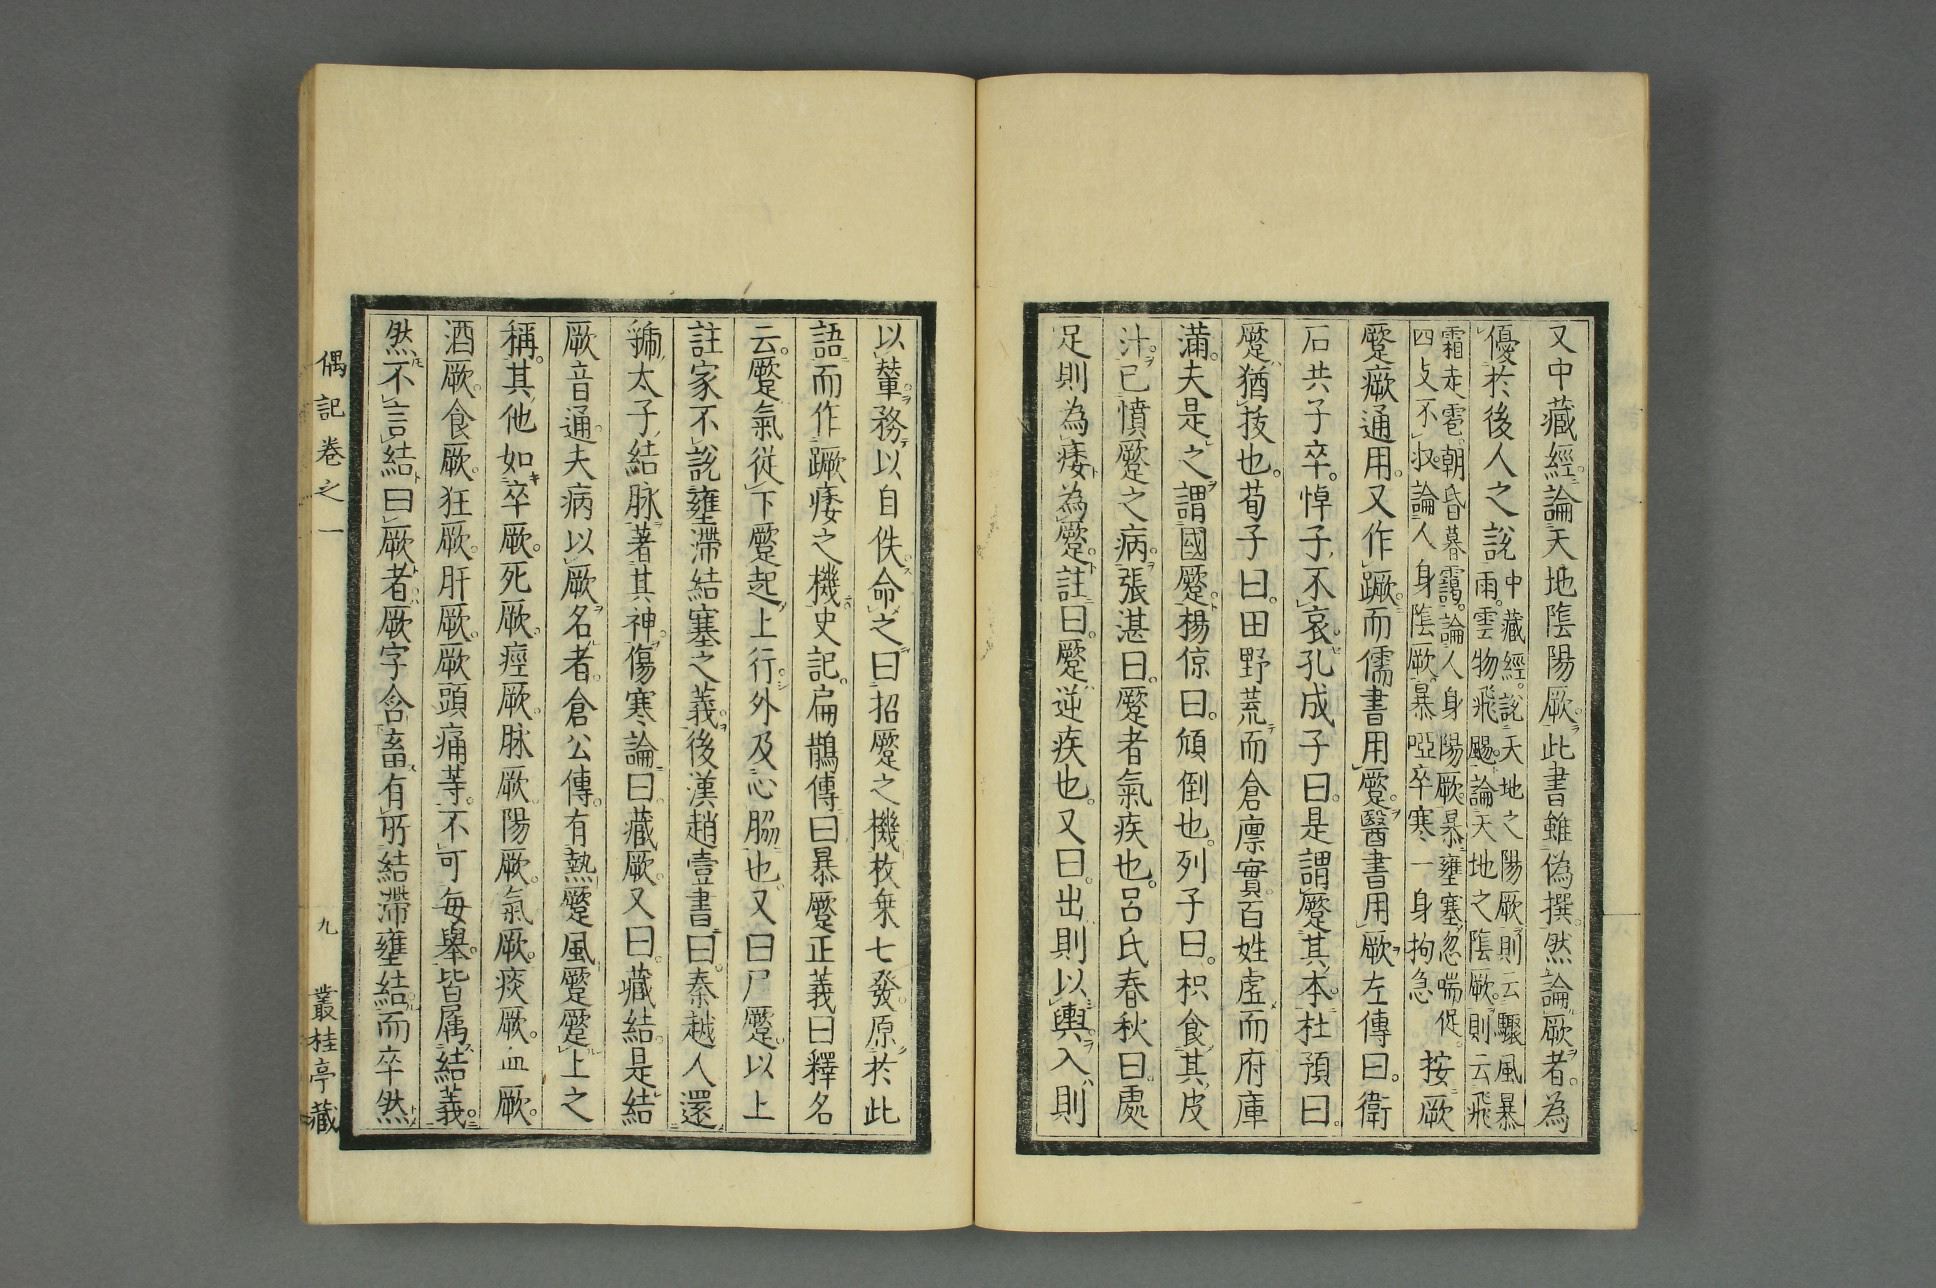 又中藏經論天地陰陽厥此書雖偽撰然論厥者為
優於後人之説中藏經説天地之陽厥則云驟風暴
雨雲物飛颺論天地之陰厥則云飛
霜走雹朝昏暮靄論人身陽厥暴壅塞忽喘促
四支不収論人身陰厥暴啞卒寒一身拘急按厥
蹷瘚通用又作蹶而儒書用蹷醫書用厥左傳曰衛
石共子卒悼子不哀孔成子曰是謂蹷其本杜預曰
蹷猶拔也荀子曰田野荒而倉廩實百姓虚而府庫
滿夫是之謂國蹷楊倞曰傾倒也列子曰枳食其皮
汁已憤蹷之病張湛曰蹷者氣疾也呂氏春秋曰處
足則為痿為蹷註曰蹷逆疾也又曰出則以輿入則
以輦務以自佚命之曰招蹷之機枚乗七發原於此
語而作蹶痿之機史記扁鵲傳曰暴蹷正義曰釋名
云蹷氣從下蹷起上行外及心脇也又曰尸蹷以上
註家不説壅滯結塞之義後漢趙壹書曰秦越人還
號太子結脉著其神傷寒論曰藏厥又曰藏結是結
厥音通夫病以厥名者倉公傳有熱蹷風蹷蹷上之
稱其他如卒厥死厥痙厥脉厥陽厥氣厥痰厥血厥
酒厥食厥狂厥肝厥厥頭痛等不可毎舉皆属結義
然不言結曰厥者厥字含畜有所結滯壅結而卒然
偶記卷之一
九
叢桂亭藏